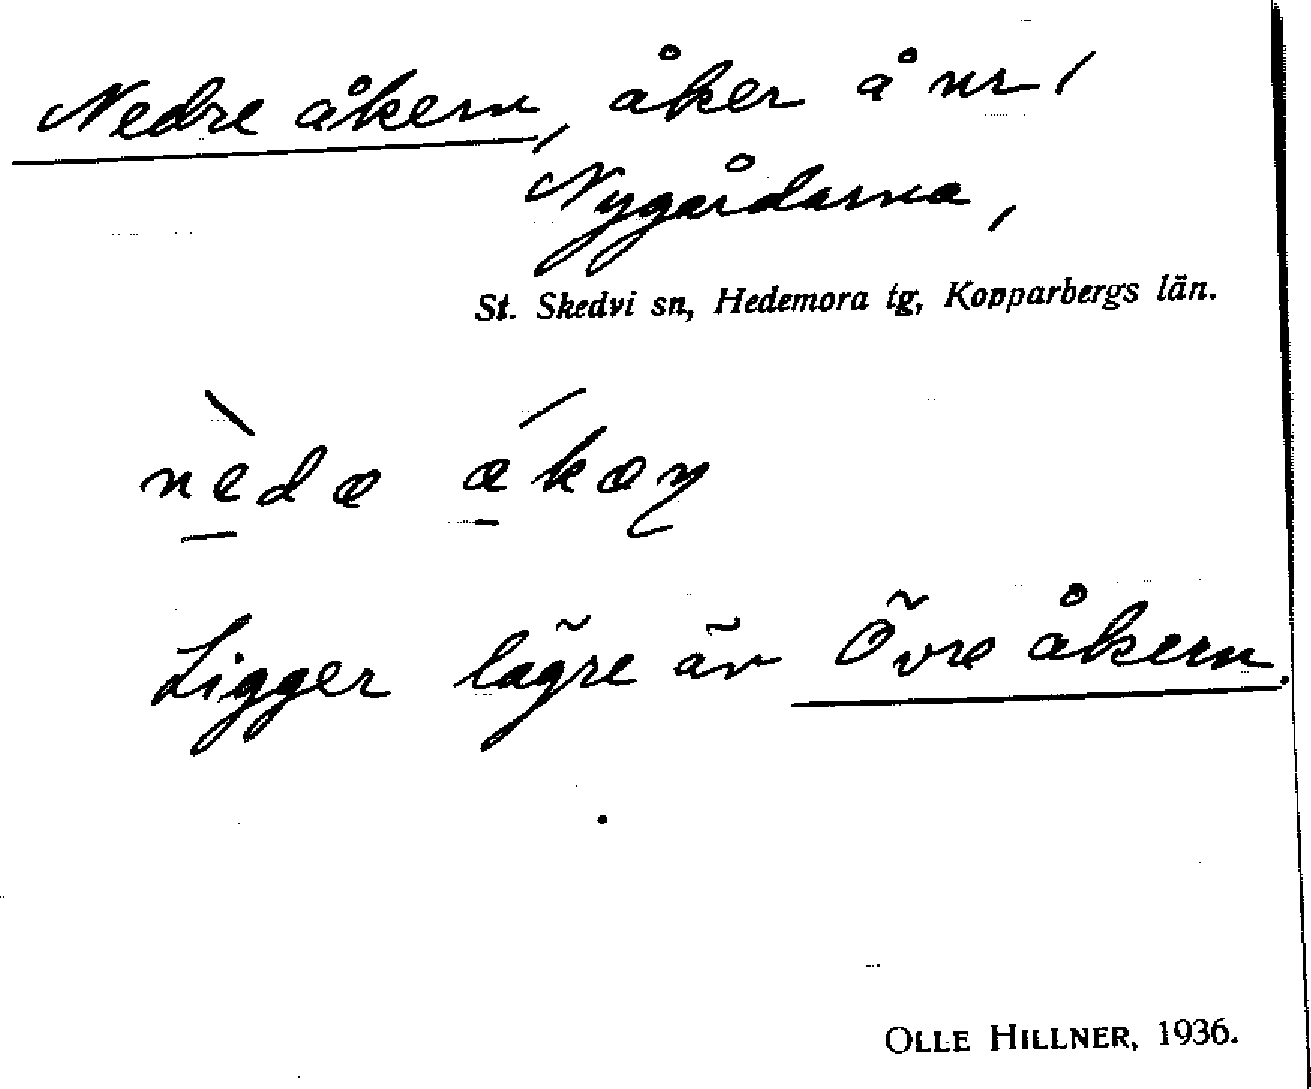 Nedre åkern, åker å nr 1
Nygårdarna,
St. Skedvi sn, Hedemora tg, Kopparbergs län.
Ligger lägre än Övre åkern.
OLLE HILLNER, 1936.